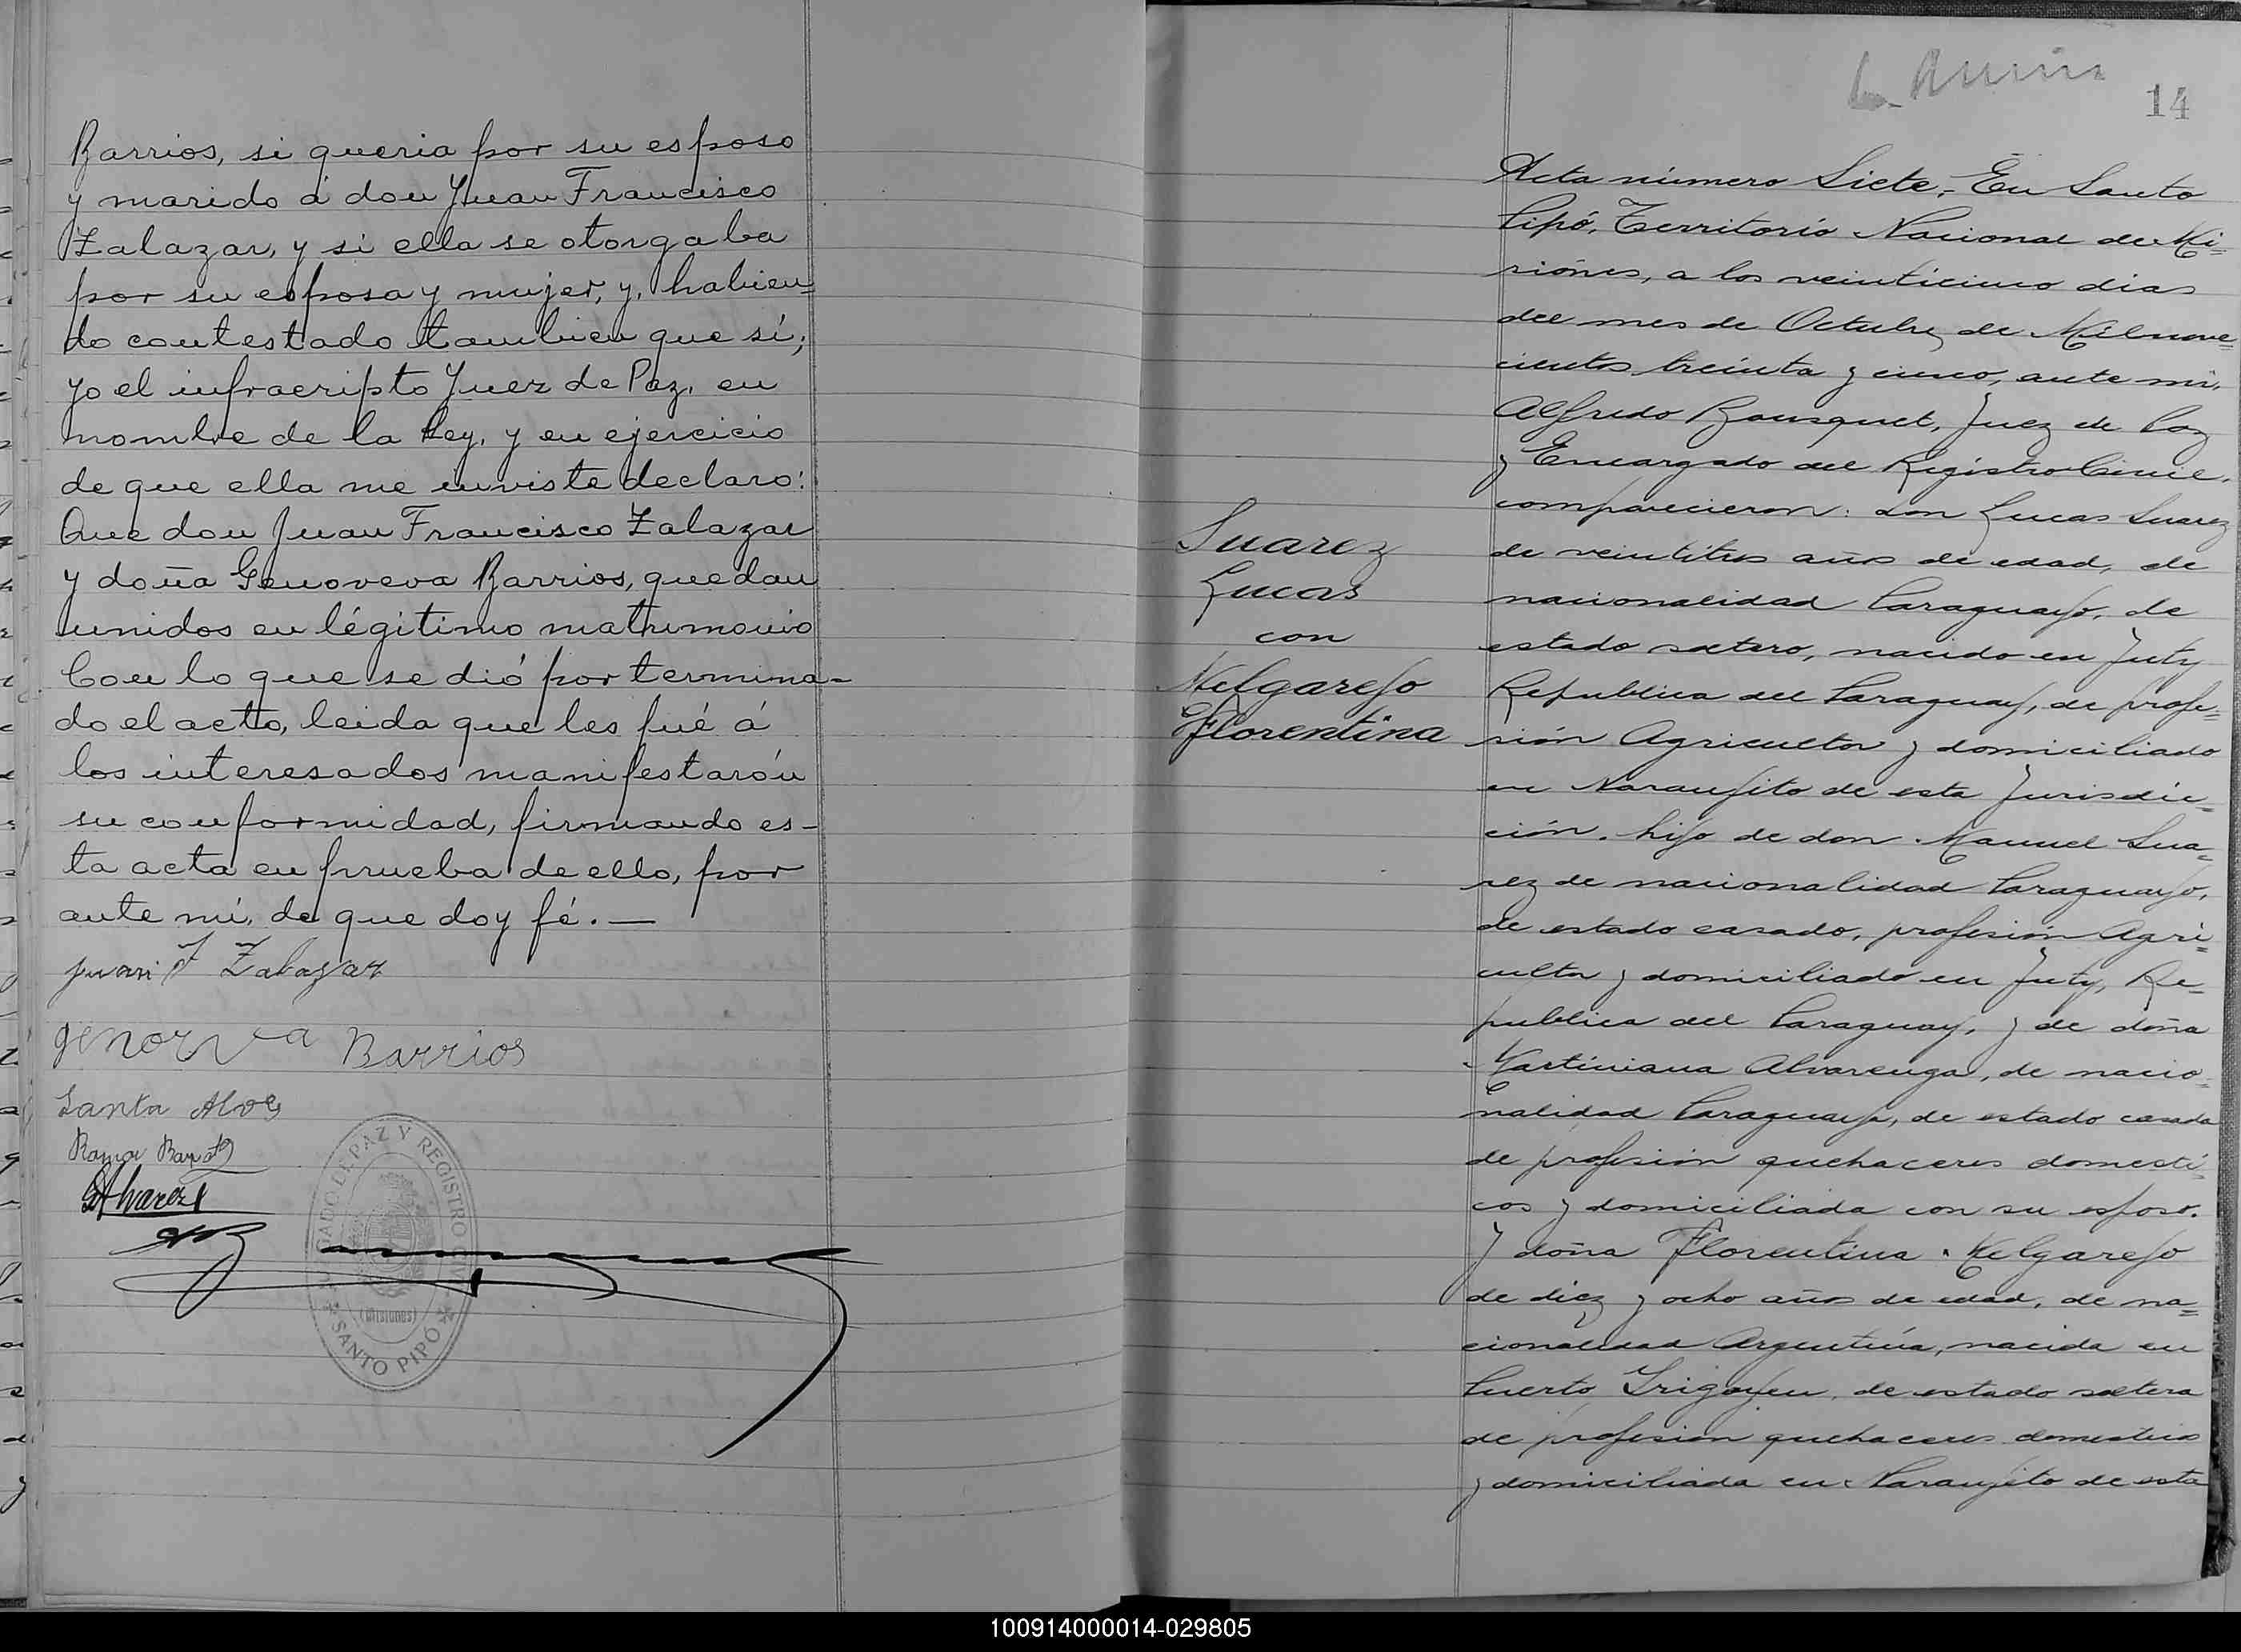 Barrios, si queria por su esposo
y marido á don Juan Francisco
Zalazar, y si ella se otorgaba
por su esposa y mujer, y, habien=
do contestado tambien que si;
yo el infraeripto Juez de Paz, en
nombre de la Ley, y en ejercicio
de que ella me inviste declaro:
Que don Juan Francisco Zalazar
y doña Genoveva Barrios, quedan
unidos en légitimo matrimonio
Con lo que se dió por termina-
do el acto, leida que les fué á
los interesados manifestarón
su conformidad, firmando es-
ta acta en prueba de ello, por
ante mí, de que doy fé.—
Juan F Zalazar
Genoveva Barrios
Santa Alves
Ramon
Alvarez
JUZGADO DE PAZ Y REGISTRO CIVIL
(Misiones)
SANTO PIPÓ
14
Acta número Siete.- En Santo
Pipó, Territorio Nacional de Mi=
siones, a los veinticinco dias
del mes de Octubre de Milnove=
cientos treinta y cinco, ante mi,
Alfredo Bousquet, Juez de Paz
y Encargado del Registro Civil,
comparecieron: don Lucas Suarez
de veintitres años de edad, de
nacionalidad Paraguayo, de
estado soltero, nacido en Juty
Republica del Paraguay, de profe=
sión Agricultor y domiciliado
en Naranjito de esta Jurisdic=
ción. hijo de don Manuel Sua=
rez de nacionalidad Paraguayo,
de estado casado, profesión Agri=
cultor y domiciliado en Juty, Re=
publica del Paraguay, y de doña
Martiniana Alvarenga, de nacio=
nalidad Paraguaya, de estado casada
de profesión quehaceres domesti=
cos y domiciliada con su esposo.
Y doña Florentina Melgarejo
de diez y ocho años de edad, de na=
cionalidad Argentina, nacida en
Puerto Irigoyen, de estado soltera
de profesión quehaceres domesticos
y domiciliada en Naranjito de esta
Suarez
Lucas
con
Melgarejo
Florentina
100914000014-029805